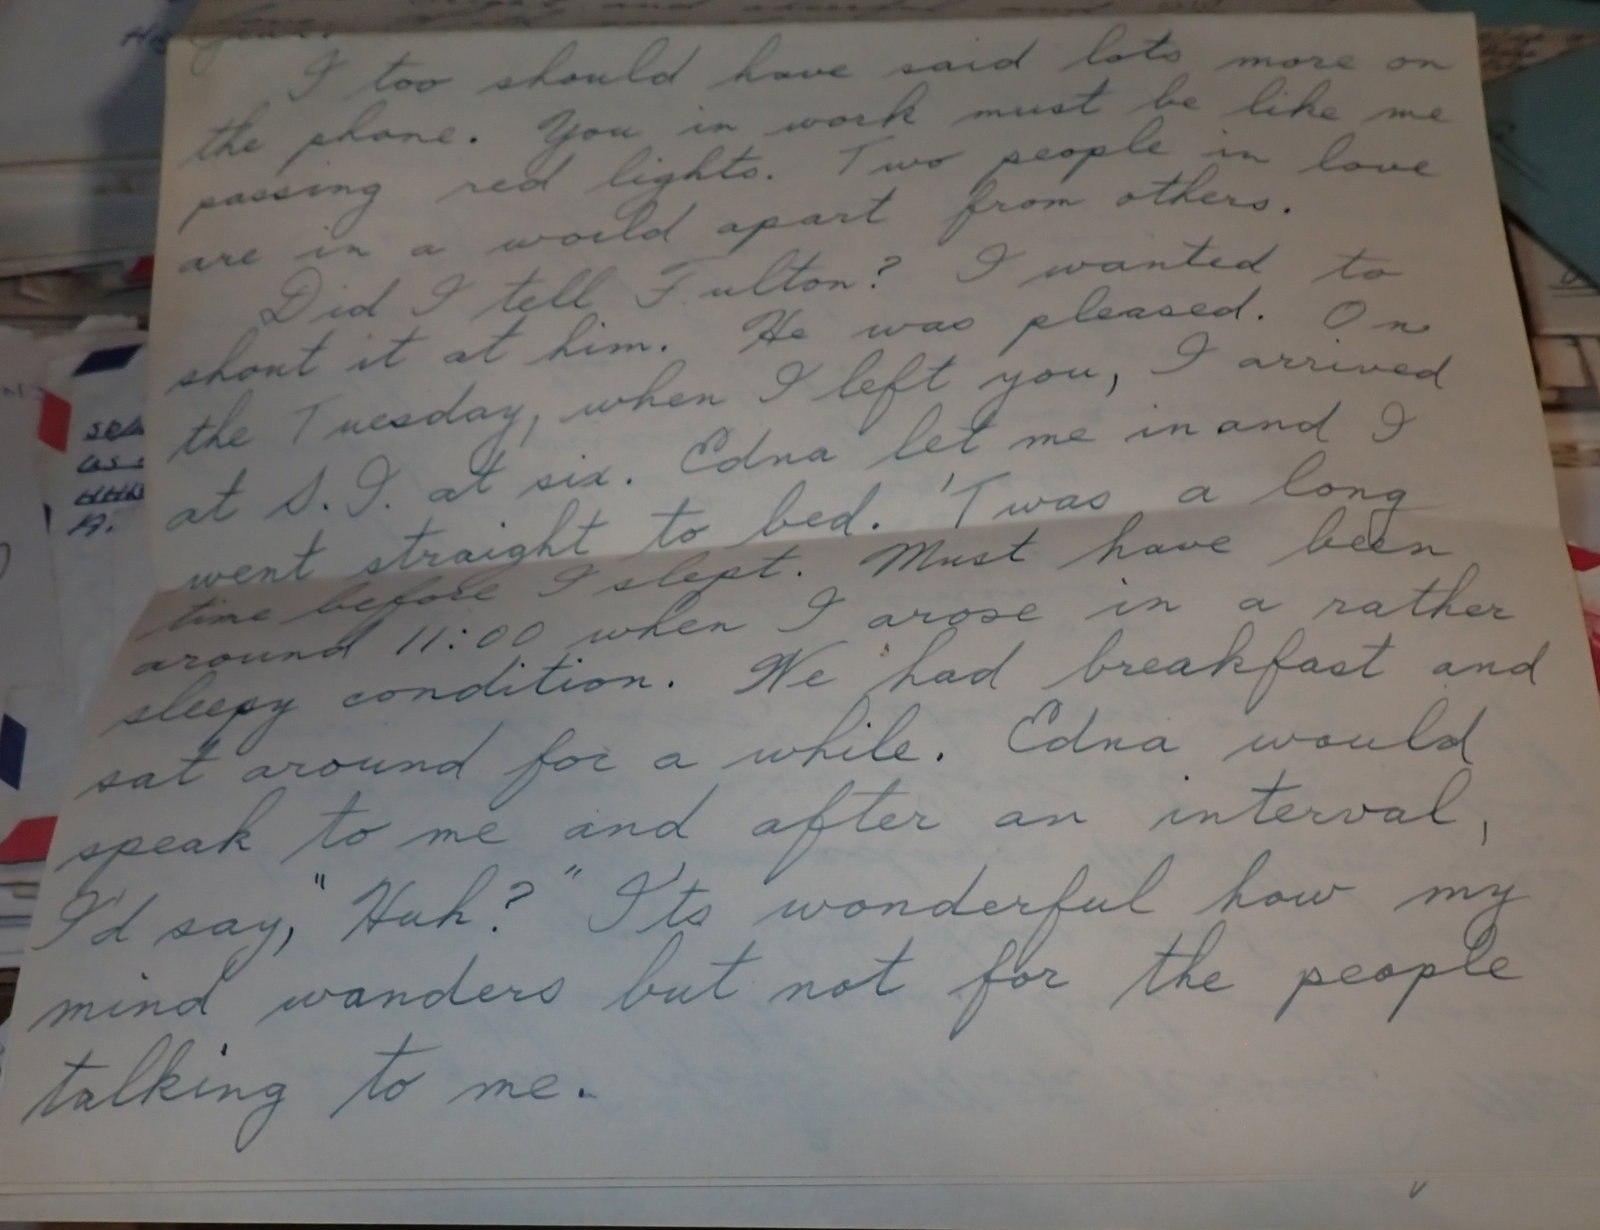 I too should have said lots more on
the phone. You in work must be like me
passing red lights. Two people in love
are in a world apart from others.
Did I tell Fulton? I wanted to
shout it at him. He was pleased. On
the Tuesday, when I left you, I arrived
at S.I. at six. Edna let me in and I
went straight to bed. 'Twas a long
time before I slept. Must have been
around 11:00 when I arose in a rather
sleepy condition. We had breakfast and
sat around for a while. Edna would
speak to me and after an interval,
I'd say, "Huh?" I'ts wonderful how my
mind wanders but not for the people
talking to me.